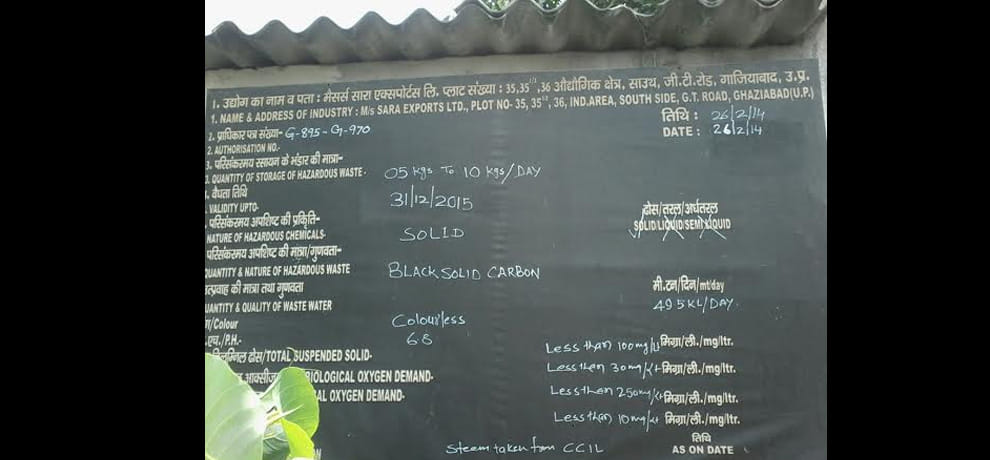 1. उद्योग का नाम व पता : मैसर्स सारा एक्सपोर्टस लि. प्लाट संख्या : 35,35 ,36 औद्योगिक क्षेत्र, साउथ, जी.टी.रोड, गाजियाबाद, उ.प्र.
1. NAME & ADDRESS OF INDUSTRY : M/s SARA EXPORTS LTD., PLOT NO- 35, 35 , 36, IND.AREA, SOUTH SIDE, G.T. ROAD, GHAZIABAD(U.P.)
तिथि : 26/2/14
2. प्राधिकार पत्र संख्या- G-895-G-970
DATE : 26/2/14
2. AUTHORISATION NO.-
3. परिसंकटमय रसायन के भंडार की मात्रा-
3. QUANTITY OF STORAGE OF HAZARDOUS WASTE - 05 kgs To 10 kgs/DAY
. वैधता तिथि
. VALIDITY UPTO- 31/12/2015
ठोस/तरल/अर्धतरल
. परिसंकटमय अपशिष्ट की प्रकृति-
SOLID/LIQUID/SEMI LIQUID
NATURE OF HAZARDOUS CHEMICALS- SOLID
परिसंकटमय अपशिष्ट की मात्रा/गुणवता-
QUANTITY & NATURE OF HAZARDOUS WASTE BLACK SOLID CARBON
की मात्रा तथा गुणवता
मी.टन/दिन/mt/day
QUANTITY & QUALITY OF WASTE WATER 495 KL/DAY.
/Colour Colourless
.एच./P.H.- 68
ठोस/TOTAL SUSPENDED SOLID- Less than 100 mg/lt मिग्रा/ली./mg/ltr.
BIOLOGICAL OXYGEN DEMAND- Less then 30 mg/lt मिग्रा/ली./mg/ltr.
AL OXYGEN DEMAND- Less then 250 mg/lt मिग्रा/ली./mg/ltr.
Less than 10 mg/lt मिग्रा/ली./mg/ltr.
तिथि
Steem taken from CCIL AS ON DATE